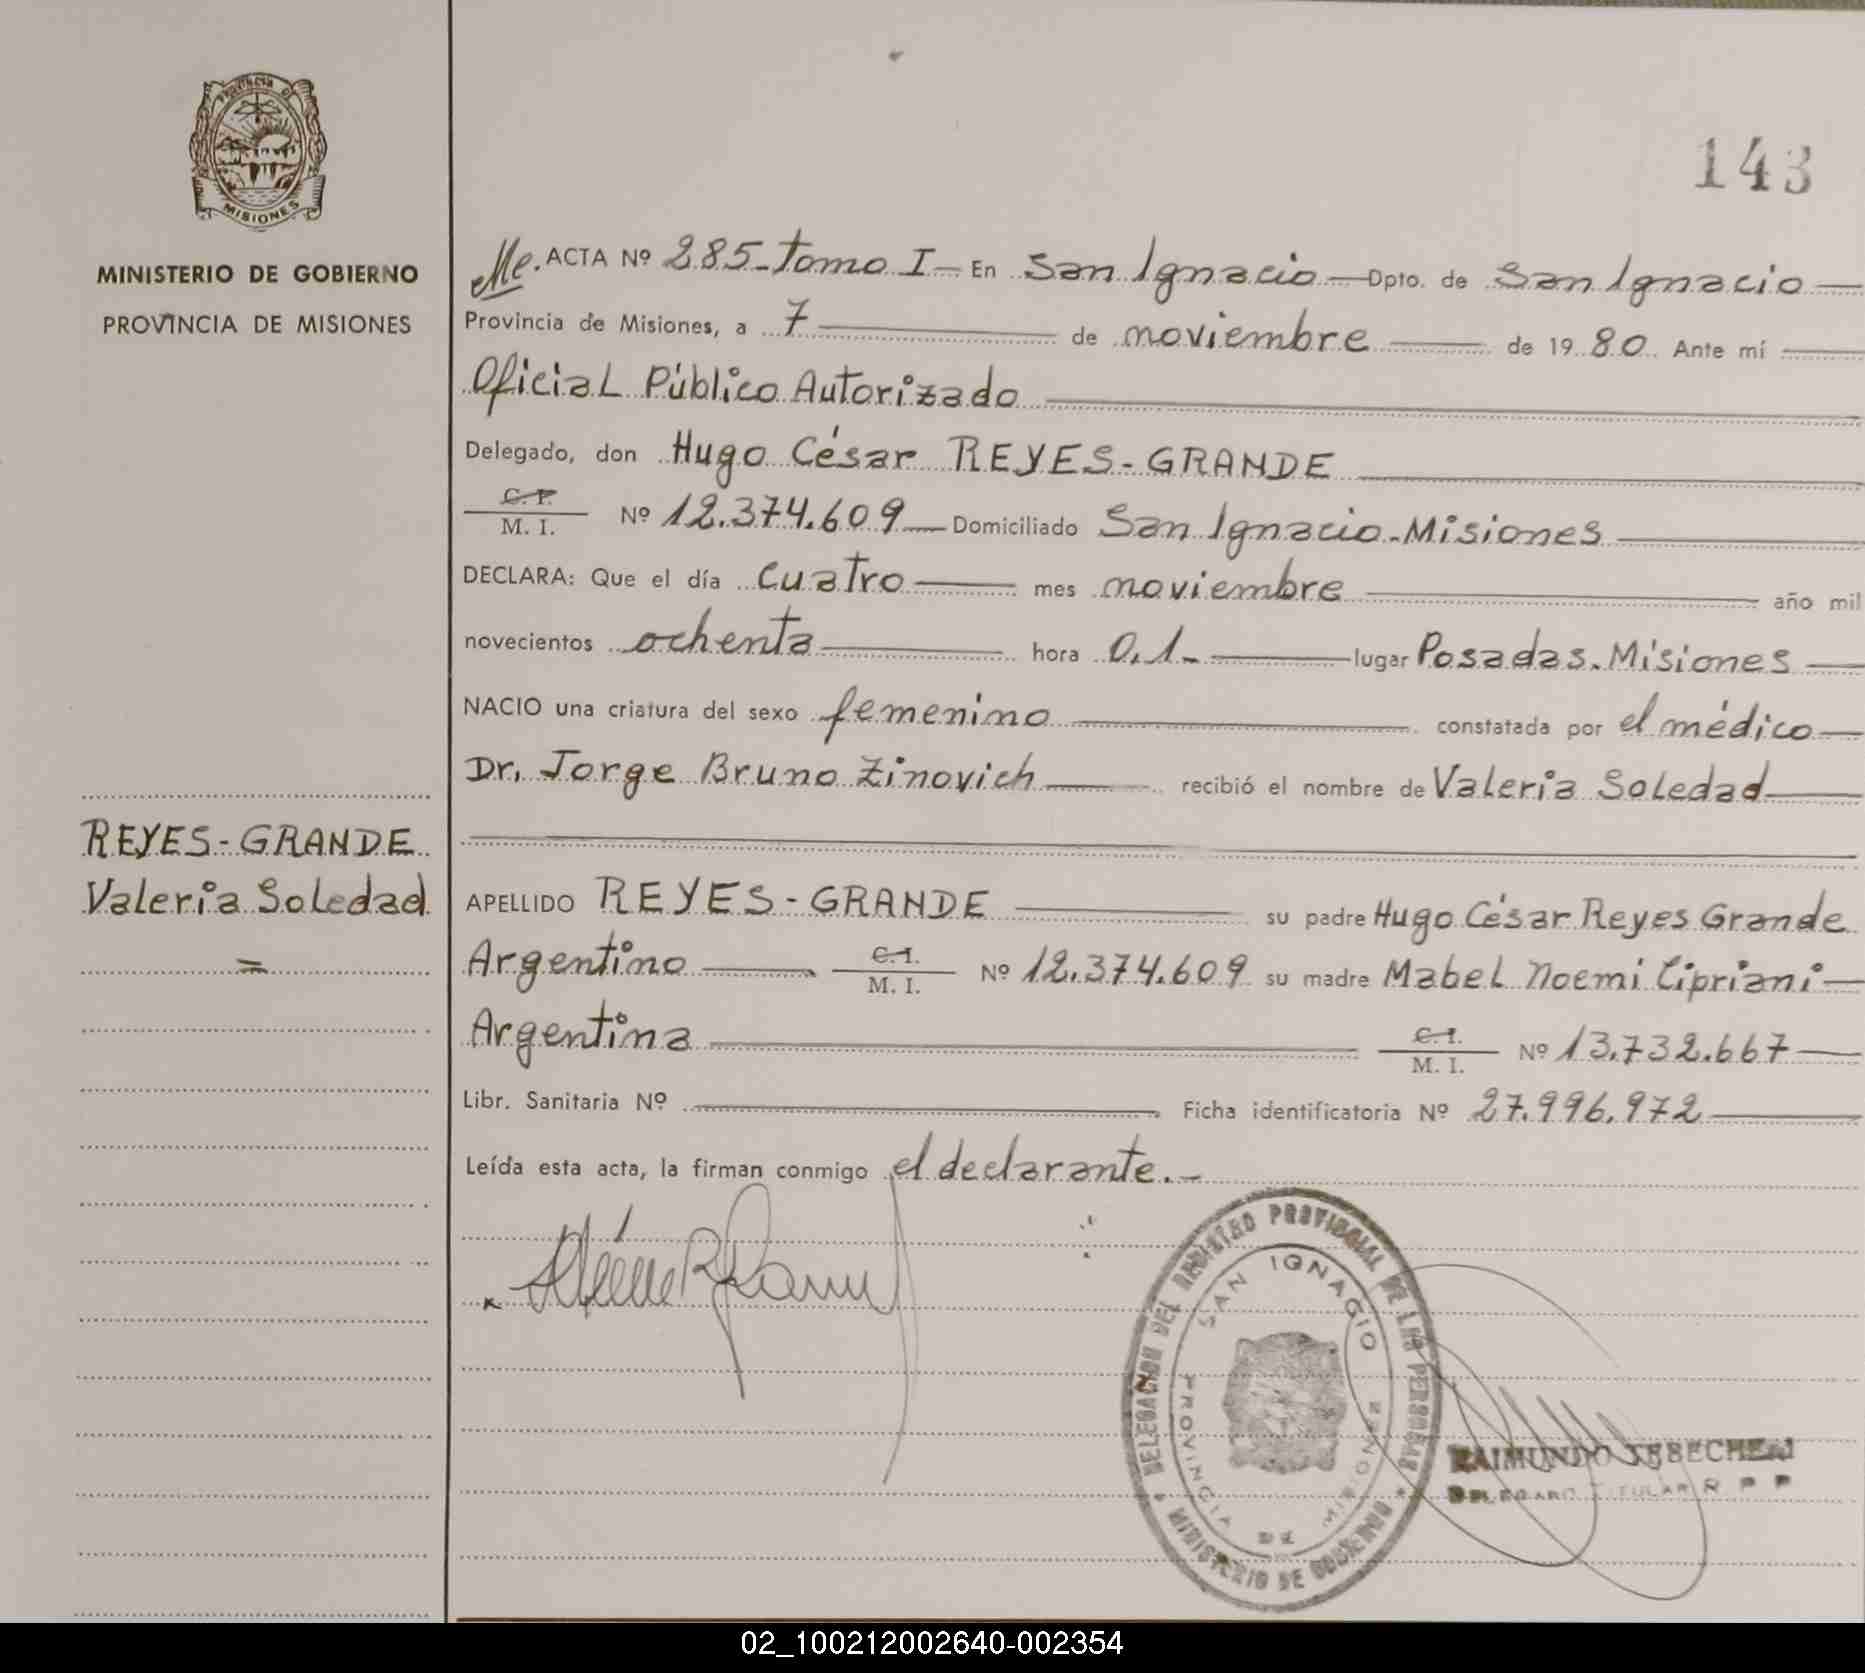 PROVINCIA DE
MISIONES
MINISTERIO DE GOBIERNO
PROVINCIA DE MISIONES
REYES-GRANDE
Valeria Soledad
=
143
Me. ACTA Nº 285-Tomo I- En San Ignacio-Dpto. de San Ignacio-
Provincia de Misiones, a 7 de noviembre de 1980. Ante mí
Oficial Público Autorizado
Delegado, don Hugo César REYES-GRANDE
C. I.
M. I. Nº 12.374.609- Domiciliado San Ignacio-Misiones
DECLARA: Que el día cuatro mes noviembre año mil
novecientos ochenta hora 0,1- lugar Posadas-Misiones
NACIO una criatura del sexo femenino constatada por el médico
Dr. Jorge Bruno Zinovich recibió el nombre de Valeria Soledad
APELLIDO REYES-GRANDE su padre Hugo César Reyes Grande
Argentino C. I. M. I. Nº 12.374.609 su madre Mabel Noemi Cipriani
Argentina C. I. M. I. Nº 13.732.667
Libr. Sanitaria Nº Ficha identificatoria Nº 27.996.972
Leída esta acta, la firman conmigo el declarante.-
DELEGACION DEL REGISTRO PROVINCIAL DE LAS PERSONAS
SAN IGNACIO
PROVINCIA DE MISIONES
MINISTERIO DE GOBIERNO
RAIMUNDO
DELEGADO TITULAR R P P
02_100212002640-002354